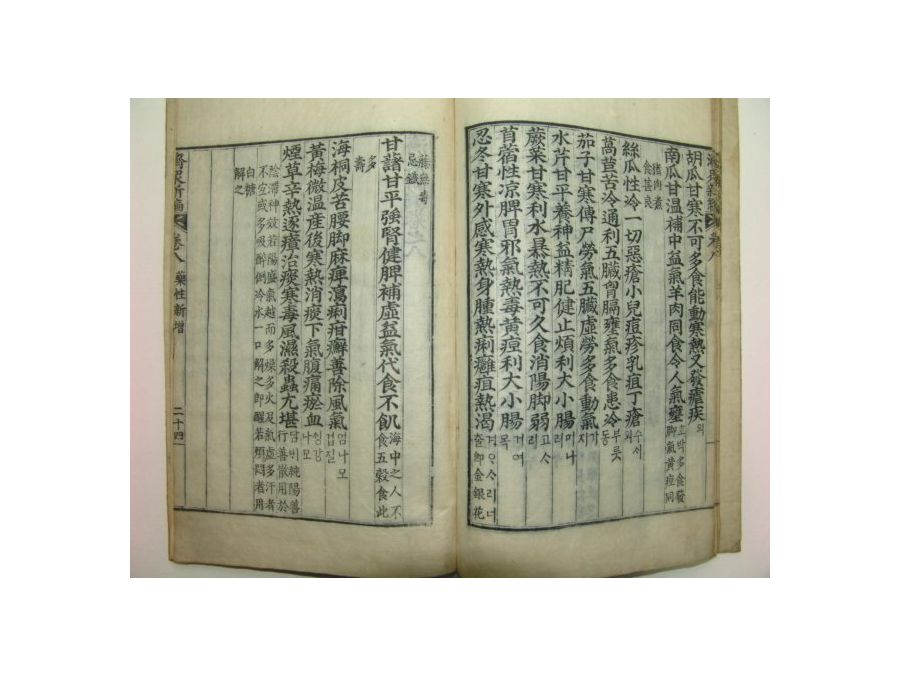 胡瓜甘寒不可多食能動寒熱又發瘧疾외
南瓜甘温補中益氣羊肉同食令人氣壅호박多食發脚氣黃疸同
猪肉煮食甚良
絲瓜性冷一切惡瘡小兒痘疹乳疽丁瘡수세외
萵苣苦冷通利五臟胷膈壅氣多食患冷부룻동
茄子甘寒傳尸勞氣五臟虛勞多食動氣가지
水芹甘平養神益精肥健止煩利大小腸미나리
蕨菜甘寒利水暴熱不可久食消陽脚弱고사리
苜蓿性凉脾胃邪氣熱毒黃疸利大小腸거여목
忍冬甘寒外感寒熱身腫熱痢癰疽熱渴너출即金銀花
藤無毒忌鐵
甘藷甘平強腎健脾補虛益氣代食不飢海中之人不食五穀食此
多壽
海桐皮苦腰脚麻痺瀉痢疳癬善除風氣엄나모겁질
黃梅微温産後寒熱消痰下氣腹痛瘀血나모
烟草辛熱逐瘴治痰寒毒風濕殺蟲尤堪담비純陽善行善散用於
陰滯神效若陽盛氣越而多燥多火及氣虛多汗者
不宜或多吸醉倒冷水一口解之即醒若煩悶者用
白糖解之
濟衆新編 卷八 藥性新增 二十四